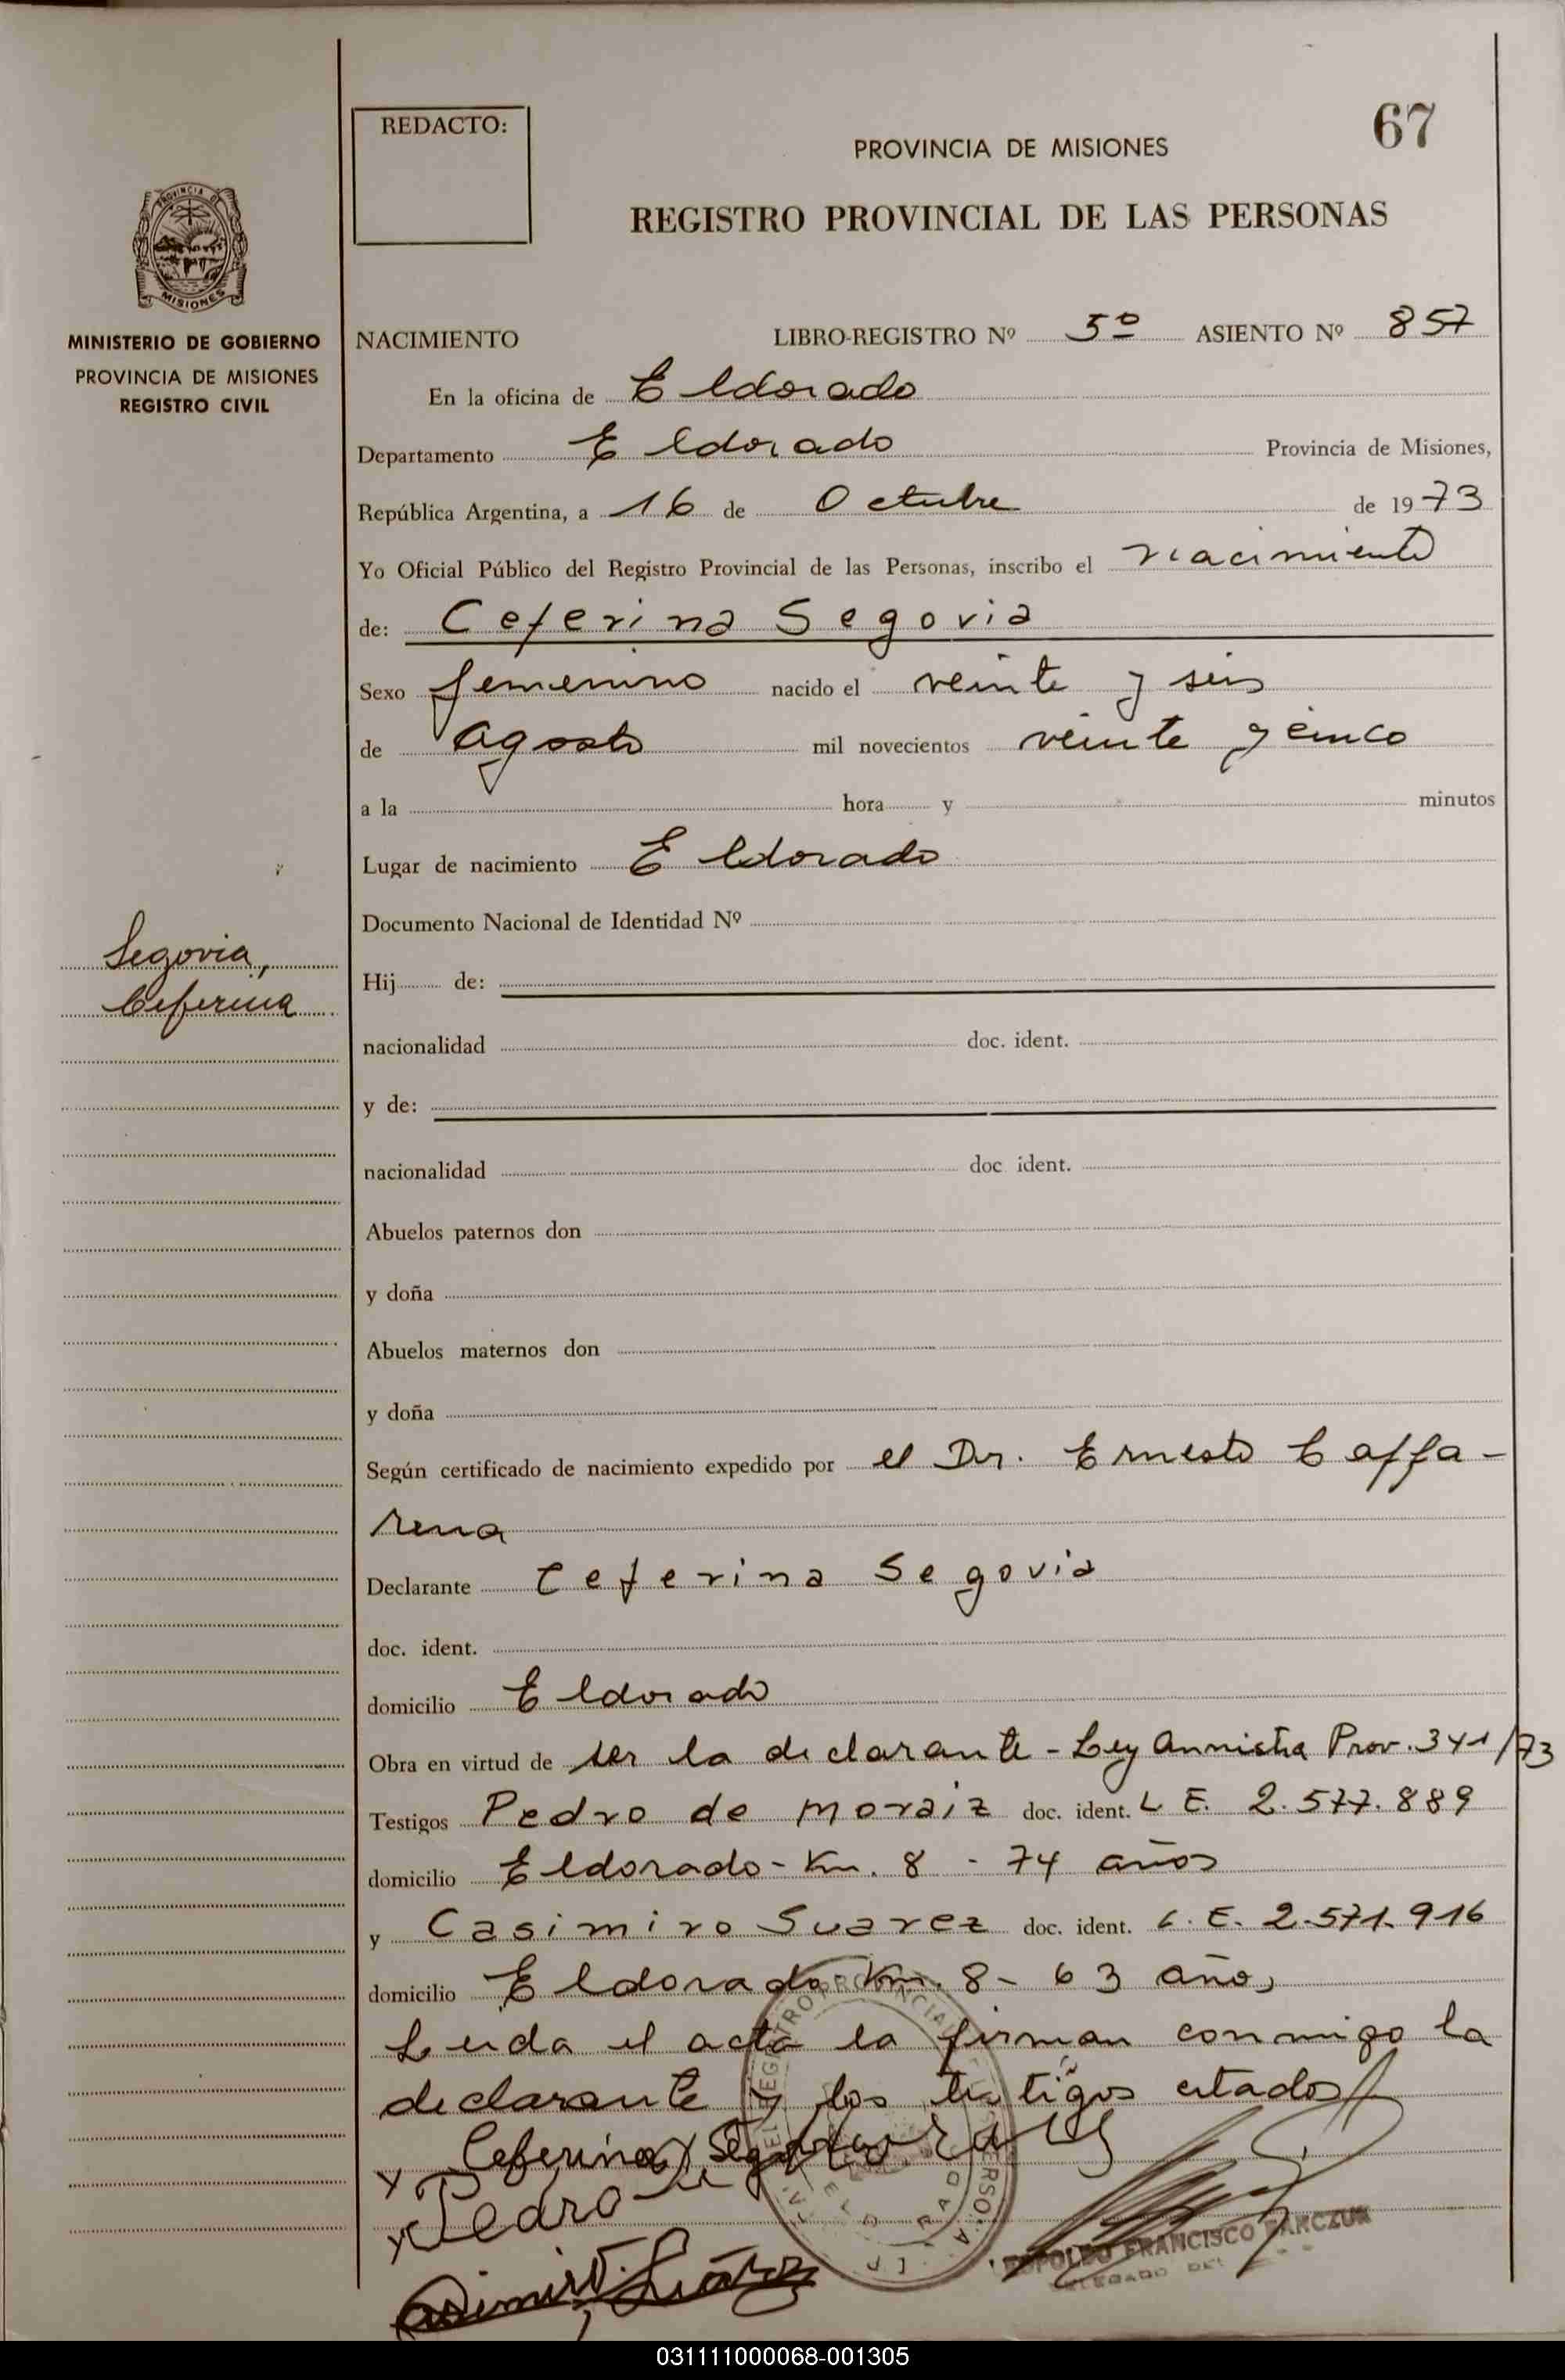 REDACTO:
67
PROVINCIA DE MISIONES
REGISTRO PROVINCIAL DE LAS PERSONAS
PROVINCIA DE
MISIONES
MINISTERIO DE GOBIERNO
PROVINCIA DE MISIONES
REGISTRO CIVIL
NACIMIENTO LIBRO-REGISTRO Nº 5º ASIENTO Nº 857
En la oficina de Eldorado
Departamento Eldorado Provincia de Misiones,
República Argentina, a 16 de Octubre de 1973
Yo Oficial Público del Registro Provincial de las Personas, inscribo el nacimiento
de: Ceferina Segovia
Sexo femenino nacido el veinte y seis
de agosto mil novecientos veinte y cinco
a la hora y minutos
Lugar de nacimiento Eldorado
Documento Nacional de Identidad Nº
Segovia,
Ceferina
Hij de:
nacionalidad doc. ident.
y de:
nacionalidad doc ident.
Abuelos paternos don
y doña
Abuelos maternos don
y doña
Según certificado de nacimiento expedido por el Dr. Ernesto Caffa-
rena
Declarante Ceferina Segovia
doc. ident.
domicilio Eldorado
Obra en virtud de ser la declarante - Ley Amnistia Prov. 341/73
Testigos Pedro de moraiz doc. ident. L E. 2.577.889
domicilio Eldorado - Km. 8 - 74 años
y Casimiro Suarez doc. ident. L. E. 2.571.916
domicilio Eldorado Km. 8 - 63 años
Leida el acta la firman conmigo la
declarante y los testigos citados
x Ceferina Segovia
x Pedro de
Casimiro Suárez
FRANCISCO
DELEGADO
031111000068-001305